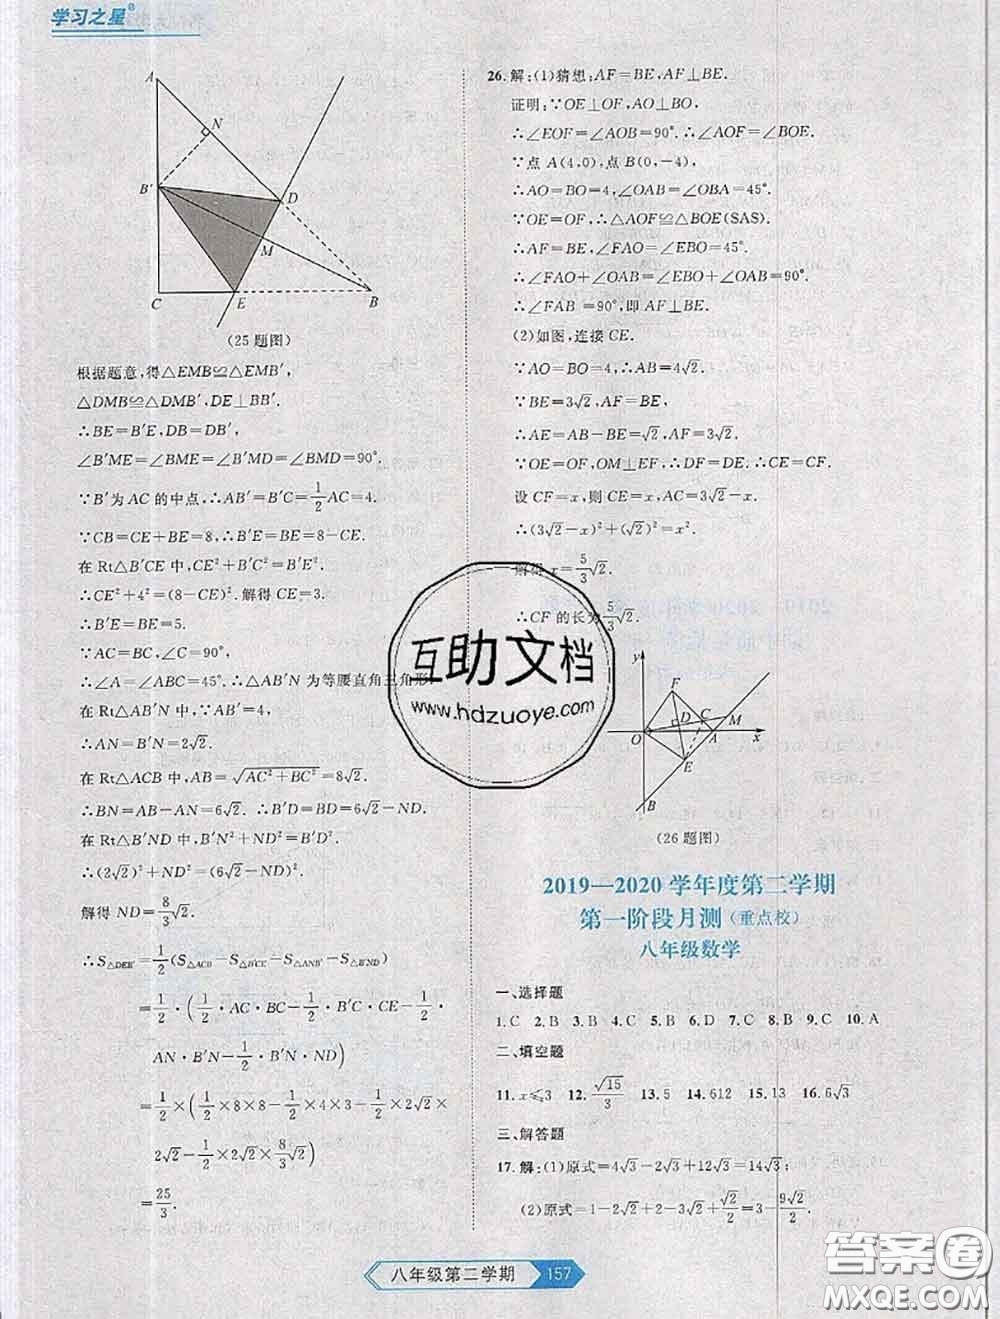 学习之星®
A
N
B′
D
M
C
E
B
(25 题图)
根据题意,得△EMB≌△EMB′,
△DMB≌△DMB′,DE⊥BB′.
∴BE=B′E,DB=DB′,
∠B′ME=∠BME=∠B′MD=∠BMD=90°.
∵B′为 AC 的中点,∴AB′=B′C=1/2AC=4.
∵CB=CE+BE=8,∴B′E=BE=8-CE.
在 Rt△B′CE 中,CE²+B′C²=B′E²,
∴CE²+4²=(8-CE)².解得 CE=3.
∴B′E=BE=5.
∵AC=BC,∠C=90°,
∴∠A=∠ABC=45°.∴△AB′N 为等腰直角三角形.
在 Rt△AB′N 中,∵AB′=4,
∴AN=B′N=2√2.
在 Rt△ACB 中,AB=√(AC²+BC²)=8√2.
∴BN=AB-AN=6√2. ∴B′D=BD=6√2-ND.
在 Rt△B′ND 中,B′N²+ND²=B′D².
∴(2√2)²+ND²=(6√2-ND)².
解得 ND=8/3√2.
∴S△DEB′=1/2(S△ACB-S△B′CE-S△ANB′-S△B′ND)
=1/2·(1/2·AC·BC-1/2·B′C·CE-1/2·
AN·B′N-1/2·B′N·ND)
=1/2×(1/2×8×8-1/2×4×3-1/2×2√2×
2√2-1/2×2√2×8/3√2)
=25/3.
26.解:(1)猜想:AF=BE,AF⊥BE.
证明:∵OE⊥OF,AO⊥BO,
∴∠EOF=∠AOB=90°.∴∠AOF=∠BOE.
∵点 A(4,0),点 B(0,-4),
∴AO=BO=4,∠OAB=∠OBA=45°.
∵OE=OF,∴△AOF≌△BOE(SAS).
∴AF=BE,∠FAO=∠EBO=45°.
∴∠FAO+∠OAB=∠EBO+∠OAB=90°.
∴∠FAB=90°,即 AF⊥BE.
(2)如图,连接 CE.
∵AO=BO=4,∴AB=4√2.
∵BE=3√2,AF=BE,
∴AE=AB-BE=√2,AF=3√2.
∵OE=OF,OM⊥EF,∴DF=DE.∴CE=CF.
设 CF=x,则 CE=x,AC=3√2-x.
∴(3√2-x)²+(√2)²=x².
解得 x=5/3√2.
∴CF 的长为5/3√2.
y
F
D
C
M
O
A
x
E
B
(26 题图)
互助文档
www.hdzuoye.com
2019—2020 学年度第二学期
第一阶段月测(重点校)
八年级数学
一、选择题
1.C 2.B 3.C 4.C 5.B 6.D 7.C 8.C 9.C 10.A
二、填空题
11.x≤3 12.√15/3 13.5 14.612 15.12 16.6√3
三、解答题
17.解:(1)原式=4√3-2√3+12√3=14√3;
(2)原式=1-2√2+2-3√2+√2/2=3-9√2/2.
八年级第二学期 157
答案圈
MXQE.COM